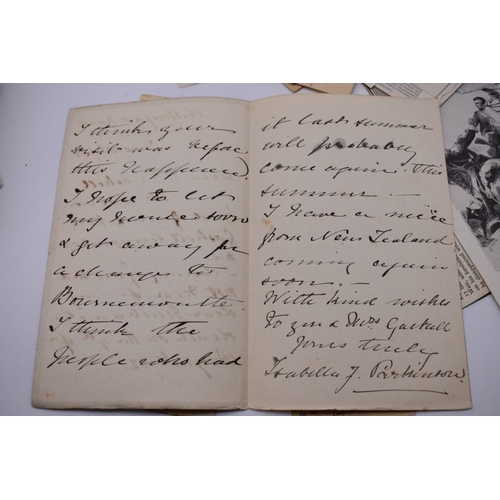 I think your
visit was before
this happened.
I hope to let
my house soon
& get away for
a change to
Bournemouth.
I think the
people who had
it last summer
will probably
come again this
summer —
I have a niece
from New Zealand
coming again
soon. —
With kind wishes
to you & Mrs Gaskell
Yours truly
Isabella J. Parkinson.